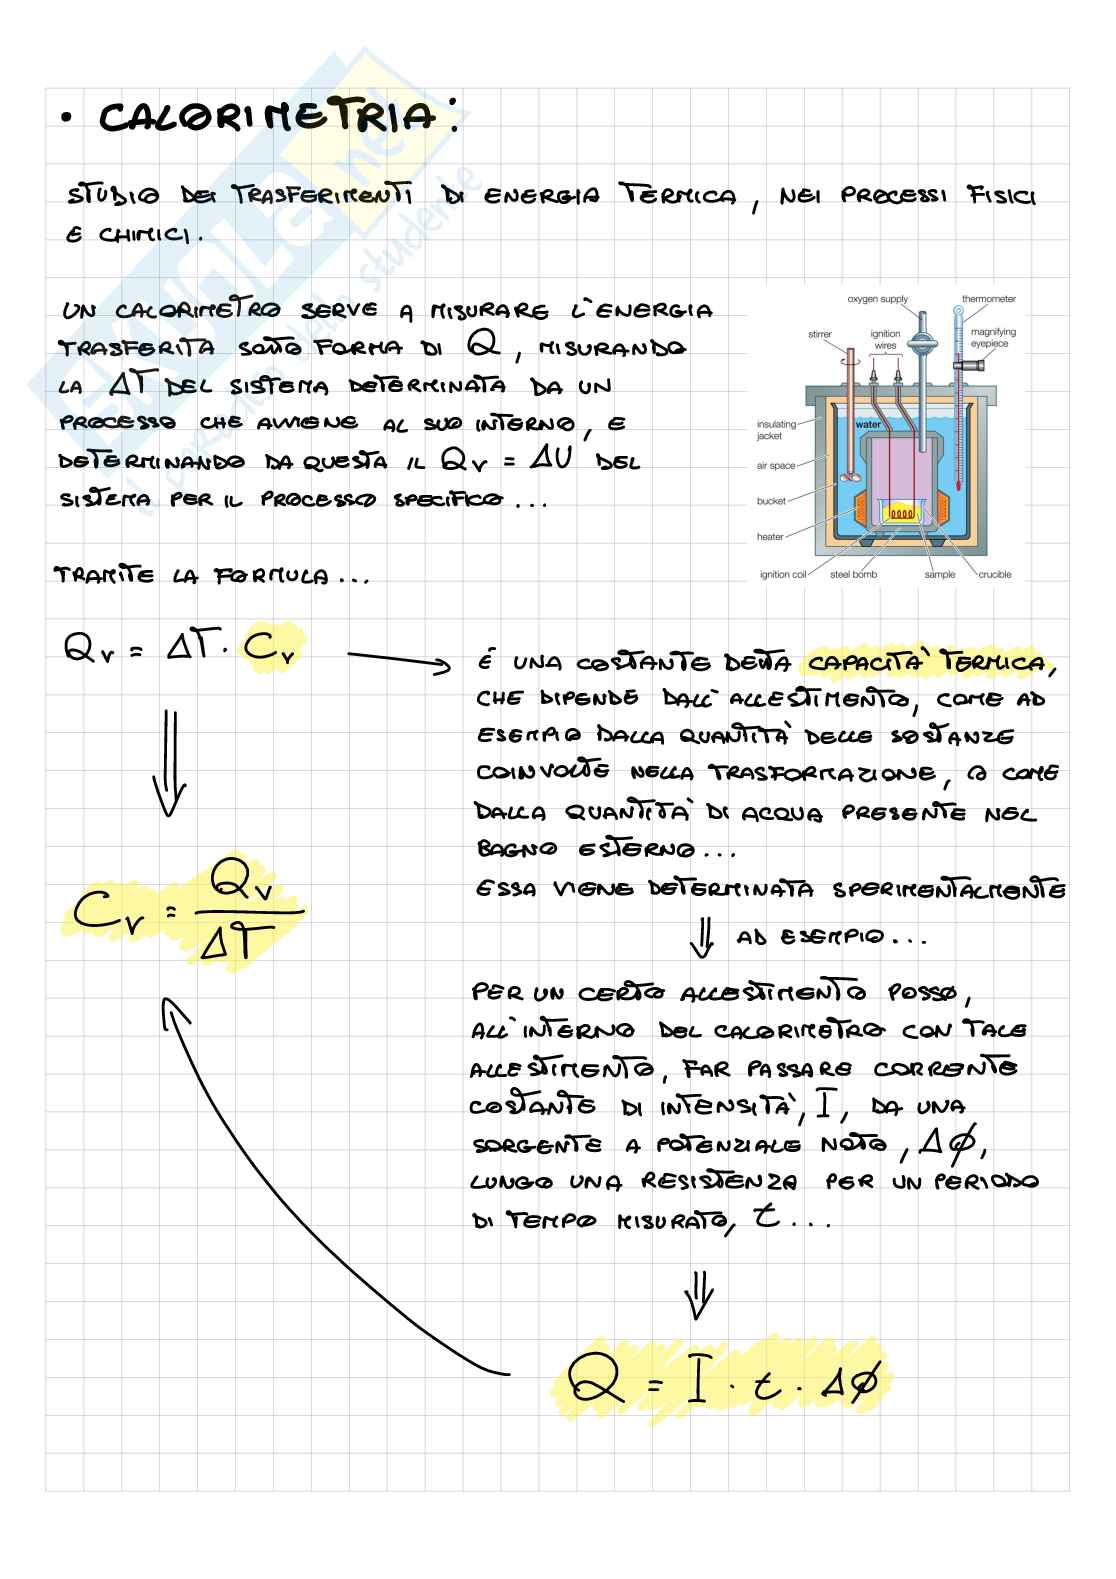 • CALORIMETRIA:
STUDIO DEI TRASFERIMENTI DI ENERGIA TERMICA, NEI PROCESSI FISICI
E CHIMICI.
UN CALORIMETRO SERVE A MISURARE L'ENERGIA
TRASFERITA SOTTO FORMA DI Q, MISURANDO
LA ΔT DEL SISTEMA DETERMINATA DA UN
PROCESSO CHE AVVIENE AL SUO INTERNO, E
DETERMINANDO DA QUESTA IL Qv = ΔU DEL
SISTEMA PER IL PROCESSO SPECIFICO...
oxygen supply
thermometer
stirrer
ignition
wires
magnifying
eyepiece
insulating
jacket
water
air space
bucket
heater
ignition coil
steel bomb
sample
crucible
TRAMITE LA FORMULA...
Qv = ΔT · Cv
É UNA COSTANTE DETTA CAPACITÀ TERMICA,
CHE DIPENDE DALL'ALLESTIMENTO, COME AD
ESEMPIO DALLA QUANTITÀ DELLE SOSTANZE
COINVOLTE NELLA TRASFORMAZIONE, O COME
DALLA QUANTITÀ DI ACQUA PRESENTE NEL
BAGNO ESTERNO...
ESSA VIENE DETERMINATA SPERIMENTALMENTE
Cv = Qv / ΔT
AD ESEMPIO...
PER UN CERTO ALLESTIMENTO POSSO,
ALL'INTERNO DEL CALORIMETRO CON TALE
ALLESTIMENTO, FAR PASSARE CORRENTE
COSTANTE DI INTENSITÀ, I, DA UNA
SORGENTE A POTENZIALE NOTO, Δϕ,
LUNGO UNA RESISTENZA PER UN PERIODO
DI TEMPO MISURATO, t...
Q = I · t · Δϕ